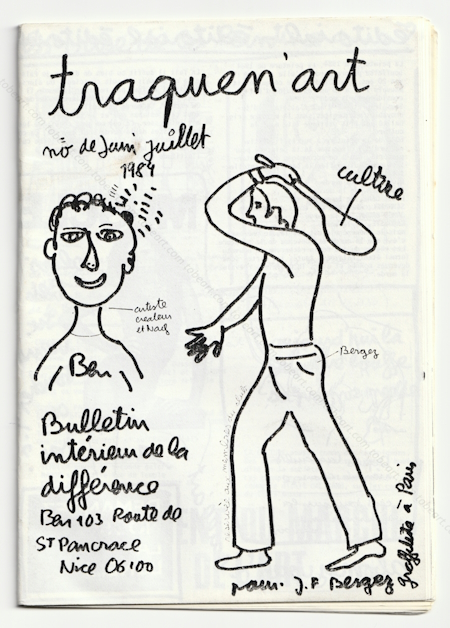 traquen'art
n° de Juin Juillet
1984
culture
artiste
createur
et Naïf
Ben
Bergez
Bulletin
intérieur de la
différence
Ben 103 Route de
ST Pancrace
Nice 06100
pour J.F Bergez
graffitiste à Paris